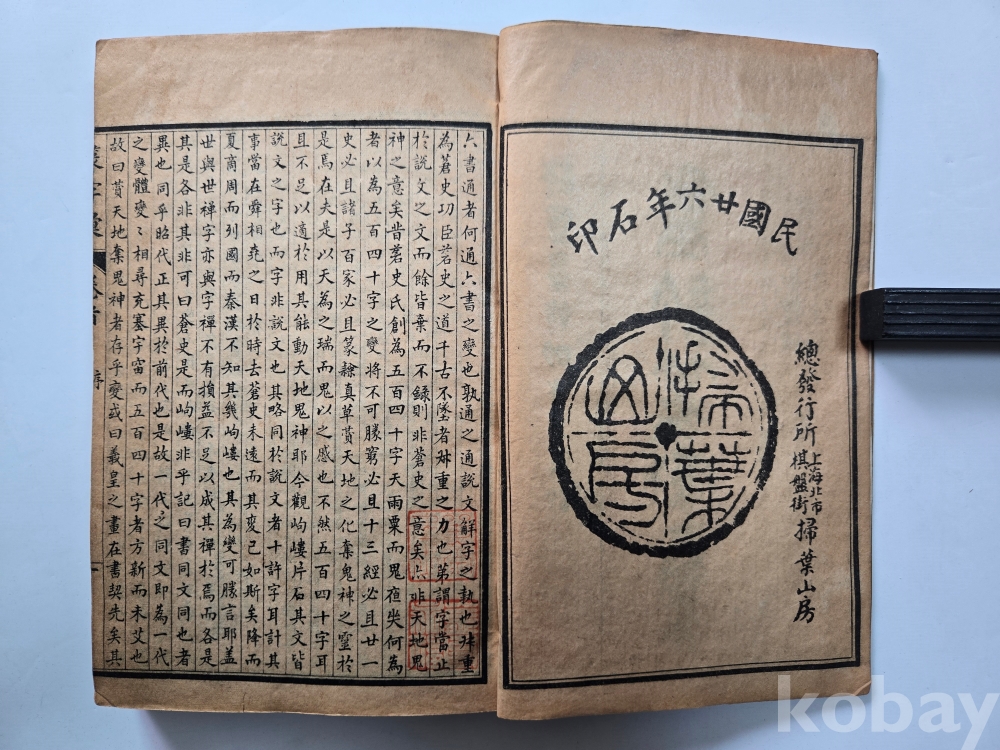 民國廿六年石印
掃葉山房
總發行所 上海北市棋盤街 掃葉山房
六書通者何通六書之變也孰通之通說文解字之執也叔重
為蒼史功臣蒼史之道千古不墜者叔重之力也第謂字當止
於說文之文而餘皆棄而不録則非蒼史之意矣亦非天地鬼
神之意矣昔蒼史氏創為五百四十字天雨粟而鬼夜哭何為
者以為五百四十字之變將不可勝窮必且十三經必且廿一
史必且諸子百家必且篆隸真草賁天地之化奪鬼神之靈於
是焉在夫是以天為之瑞而鬼以之感也不然五百四十字耳
且不足以適於用其能動天地鬼神耶今觀岣嶁片石其文皆
說文之字也而字非說文也其略同於說文者十許字耳計其
事當在舜相堯之日於時去蒼史未遠而其變已如斯矣降而
夏商周而列國而秦漢不知其幾岣嶁也其為變可勝言耶蓋
世與世禪字亦與字禪不有損益不足以成其禪於焉而各是
其是各非其非可曰蒼史是而岣嶁非乎記曰書同文同也者
異也同乎昭代正其異於前代也是故一代之同文即為一代
之變體變〻相尋充塞宇宙而五百四十字者方新而未艾也
故曰賁天地奪鬼神者存乎變或曰羲皇之畫在書契先矣其
字彙
卷首
序
一
kobay